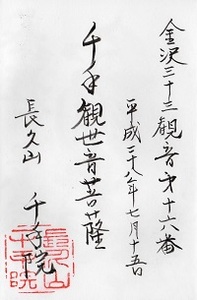 金沢三十三観音第十六番
平成二十八年七月十五日
千手観世音菩薩
長久山 千手院